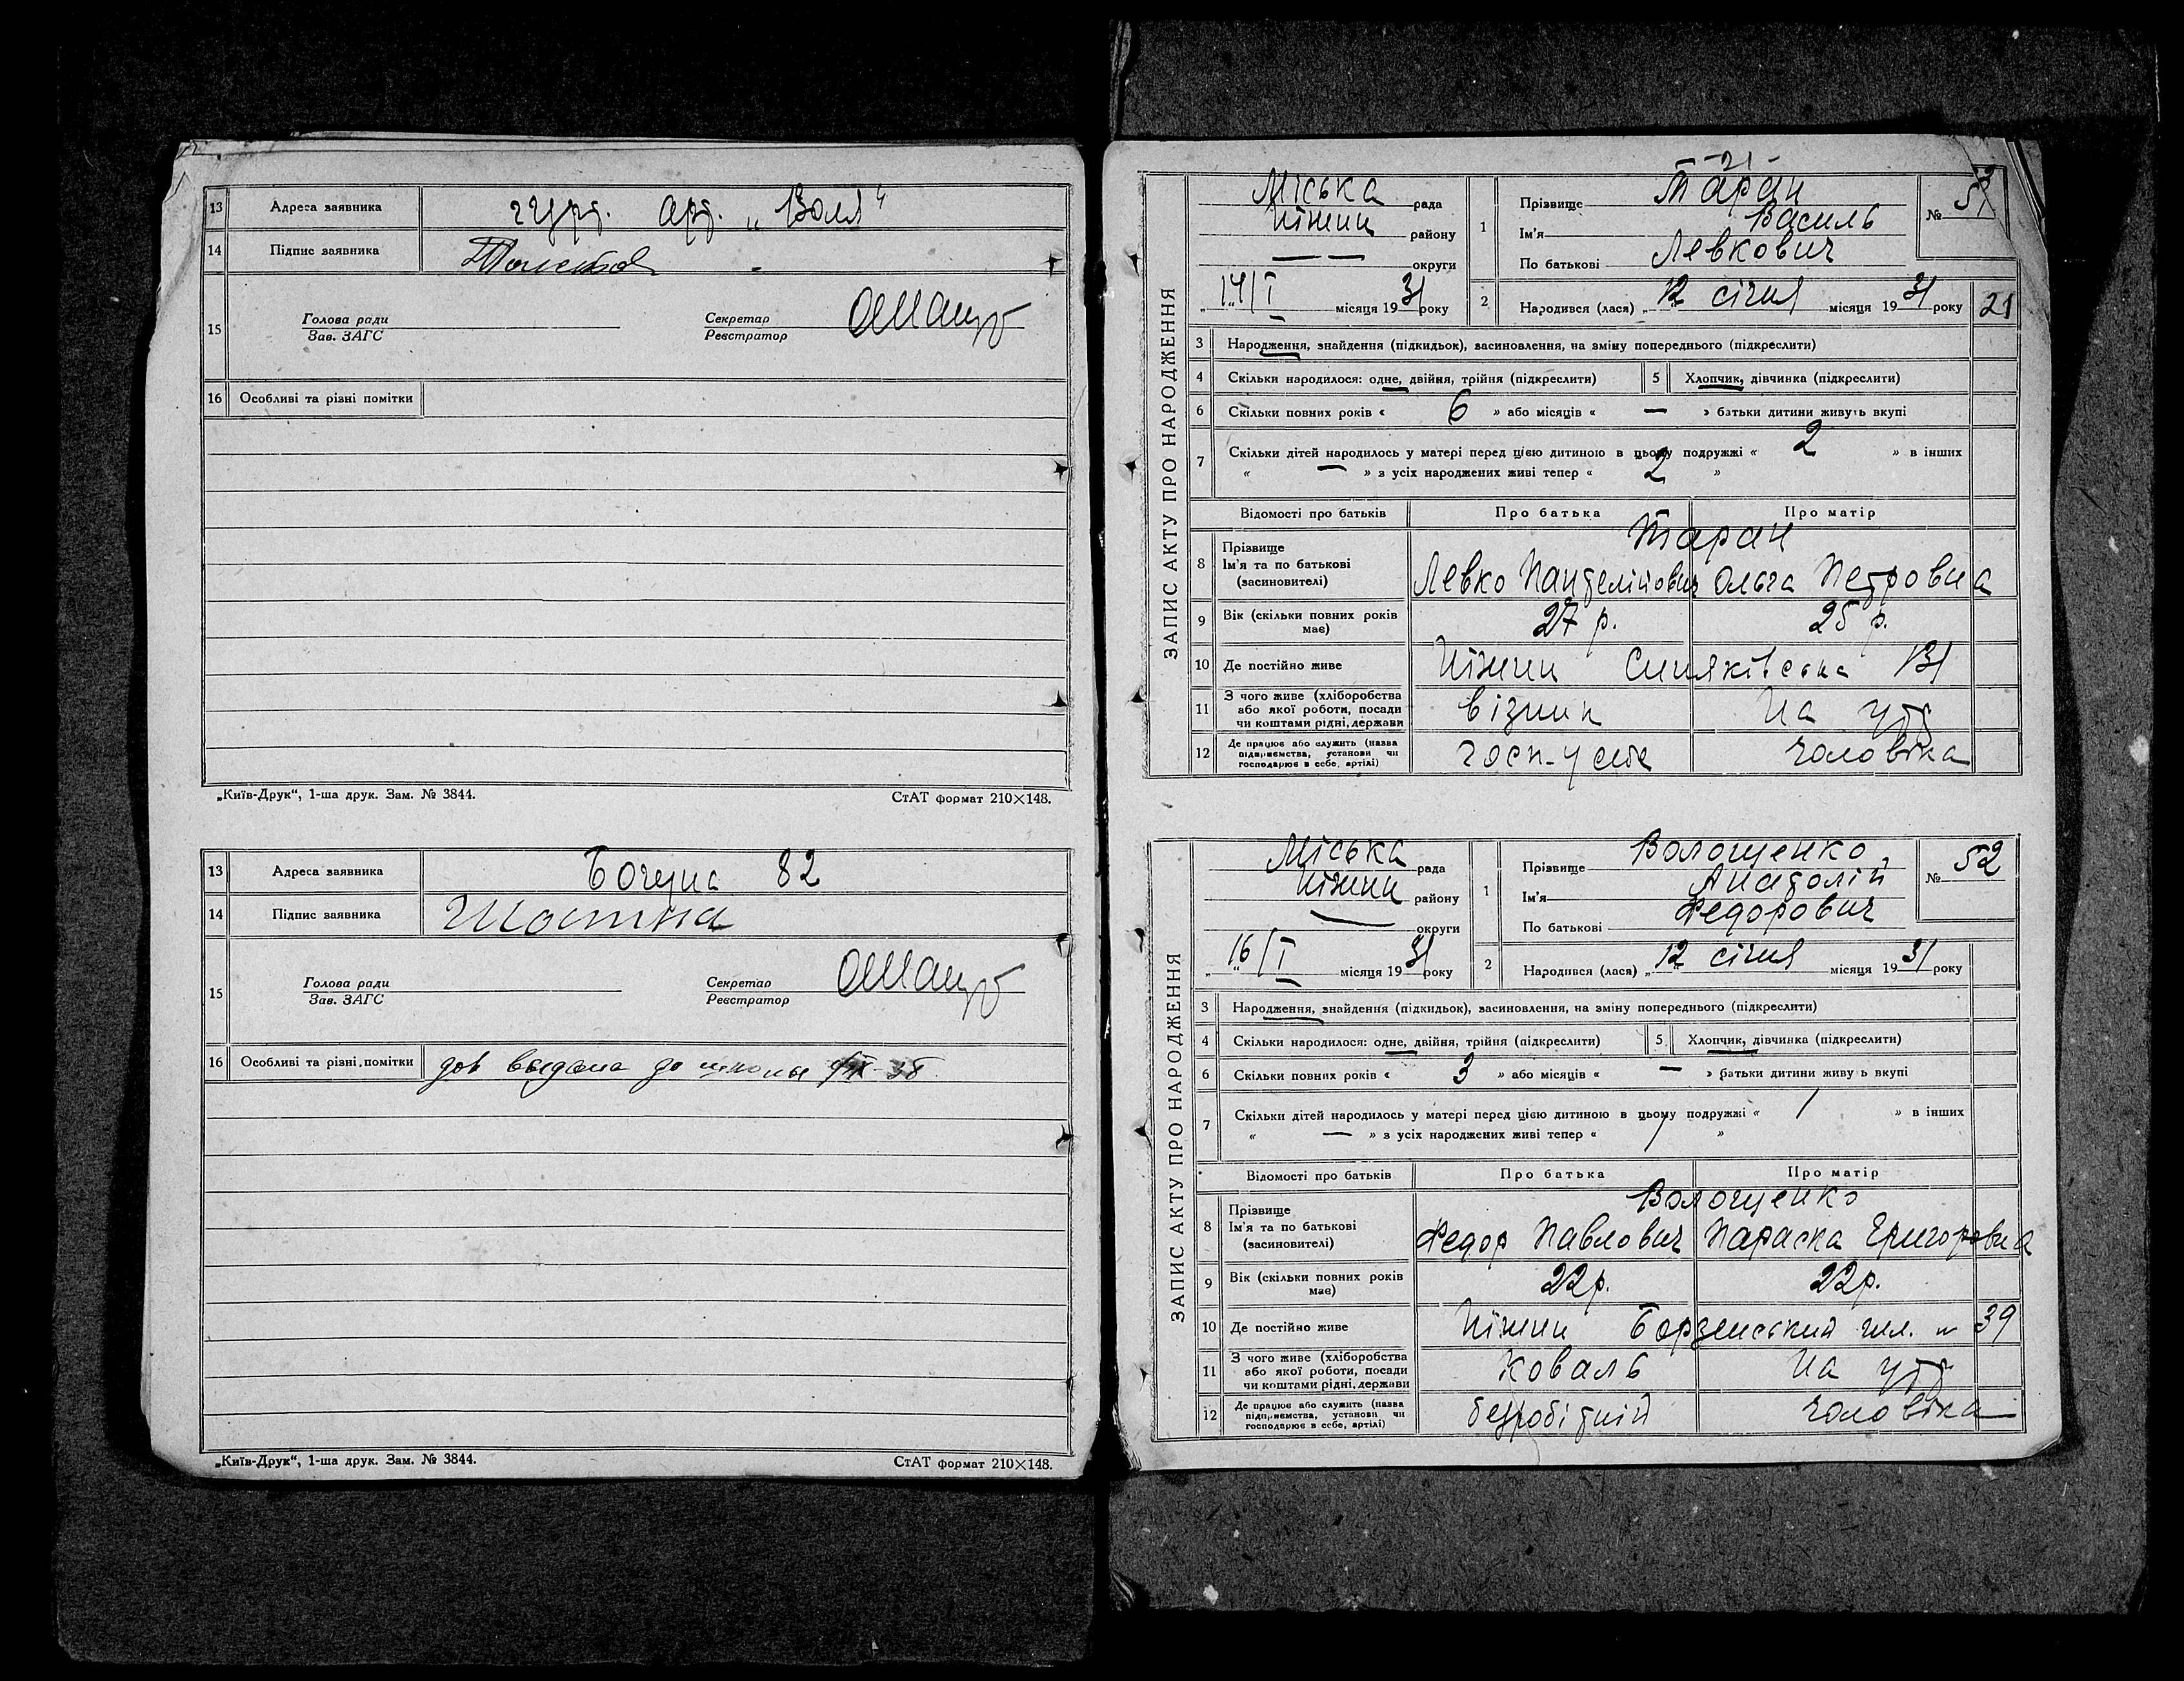 13 Адреса заявника гурт. арт. „Воля“
14 Підпис заявника
15 Голова ради Секретар
Зав. ЗАГС Реєстратор
16 Особливі та різні помітки
„Київ-Друк“, 1-ша друк. Зам. № 3844. СтАТ формат 210×148.
13 Адреса заявника 82
14 Підпис заявника
15 Голова ради Секретар
Зав. ЗАГС Реєстратор
16 Особливі та різні помітки дов выдана до школы
„Київ-Друк“, 1-ша друк. Зам. № 3844. СтАТ формат 210×148.
ЗАПИС АКТУ ПРО НАРОДЖЕННЯ
-21-
Міська рада
Ніжин району
— — округи
„14/I місяця 1931 року
1 Прізвище Таран
Ім'я Василь
По батькові Левкович
№ 51
2 Народився (лася) „12 січня місяця 1931 року 21
3 Народження, знайдення (підкидьок), засиновлення, на зміну попереднього (підкреслити)
4 Скільки народилося: одне, двійня, трійня (підкреслити) 5 Хлопчик, дівчинка (підкреслити)
6 Скільки повних років « 6 » або місяців « — » батьки дитини живуть вкупі
7 Скільки дітей народилось у матері перед цією дитиною в цьому подружжі « 2 » в інших
« — » з усіх народжених живі тепер « 2 »
Відомості про батьків Про батька Про матір
8 Прізвище Таран
Ім'я та по батькові
(засиновителі) Левко Пантелійович Ольга Петровна
9 Вік (скільки повних років має) 27 р. 25 р.
10 Де постійно живе Ніжин Синяківська 131
11 З чого живе (хліборобства
або якої роботи, посади
чи коштами рідні, держави візник На утр
12 Де працює або служить (назва
підприємства, установи чи
господарює в себе, артілі) госп-у себе чоловіка
ЗАПИС АКТУ ПРО НАРОДЖЕННЯ
Міська рада
Ніжин району
— округи
„16/I місяця 1931 року
1 Прізвище Волощенко
Ім'я Анатолій
По батькові Федорович
№ 52
2 Народився (лася) „12 січня місяця 1931 року
3 Народження, знайдення (підкидьок), засиновлення, на зміну попереднього (підкреслити)
4 Скільки народилося: одне, двійня, трійня (підкреслити) 5 Хлопчик, дівчинка (підкреслити)
6 Скільки повних років « 3 » або місяців « — » батьки дитини живуть вкупі
7 Скільки дітей народилось у матері перед цією дитиною в цьому подружжі « 1 » в інших
« — » з усіх народжених живі тепер « 1 »
Відомості про батьків Про батька Про матір
8 Прізвище Волощенко
Ім'я та по батькові
(засиновителі) Федор Павлович Параска Григоровна
9 Вік (скільки повних років має) 22р. 22р.
10 Де постійно живе Ніжин Борзенський шл. № 39
11 З чого живе (хліборобства
або якої роботи, посади
чи коштами рідні, держави Коваль На утр
12 Де працює або служить (назва
підприємства, установи чи
господарює в себе, артілі) безробітній чоловіка